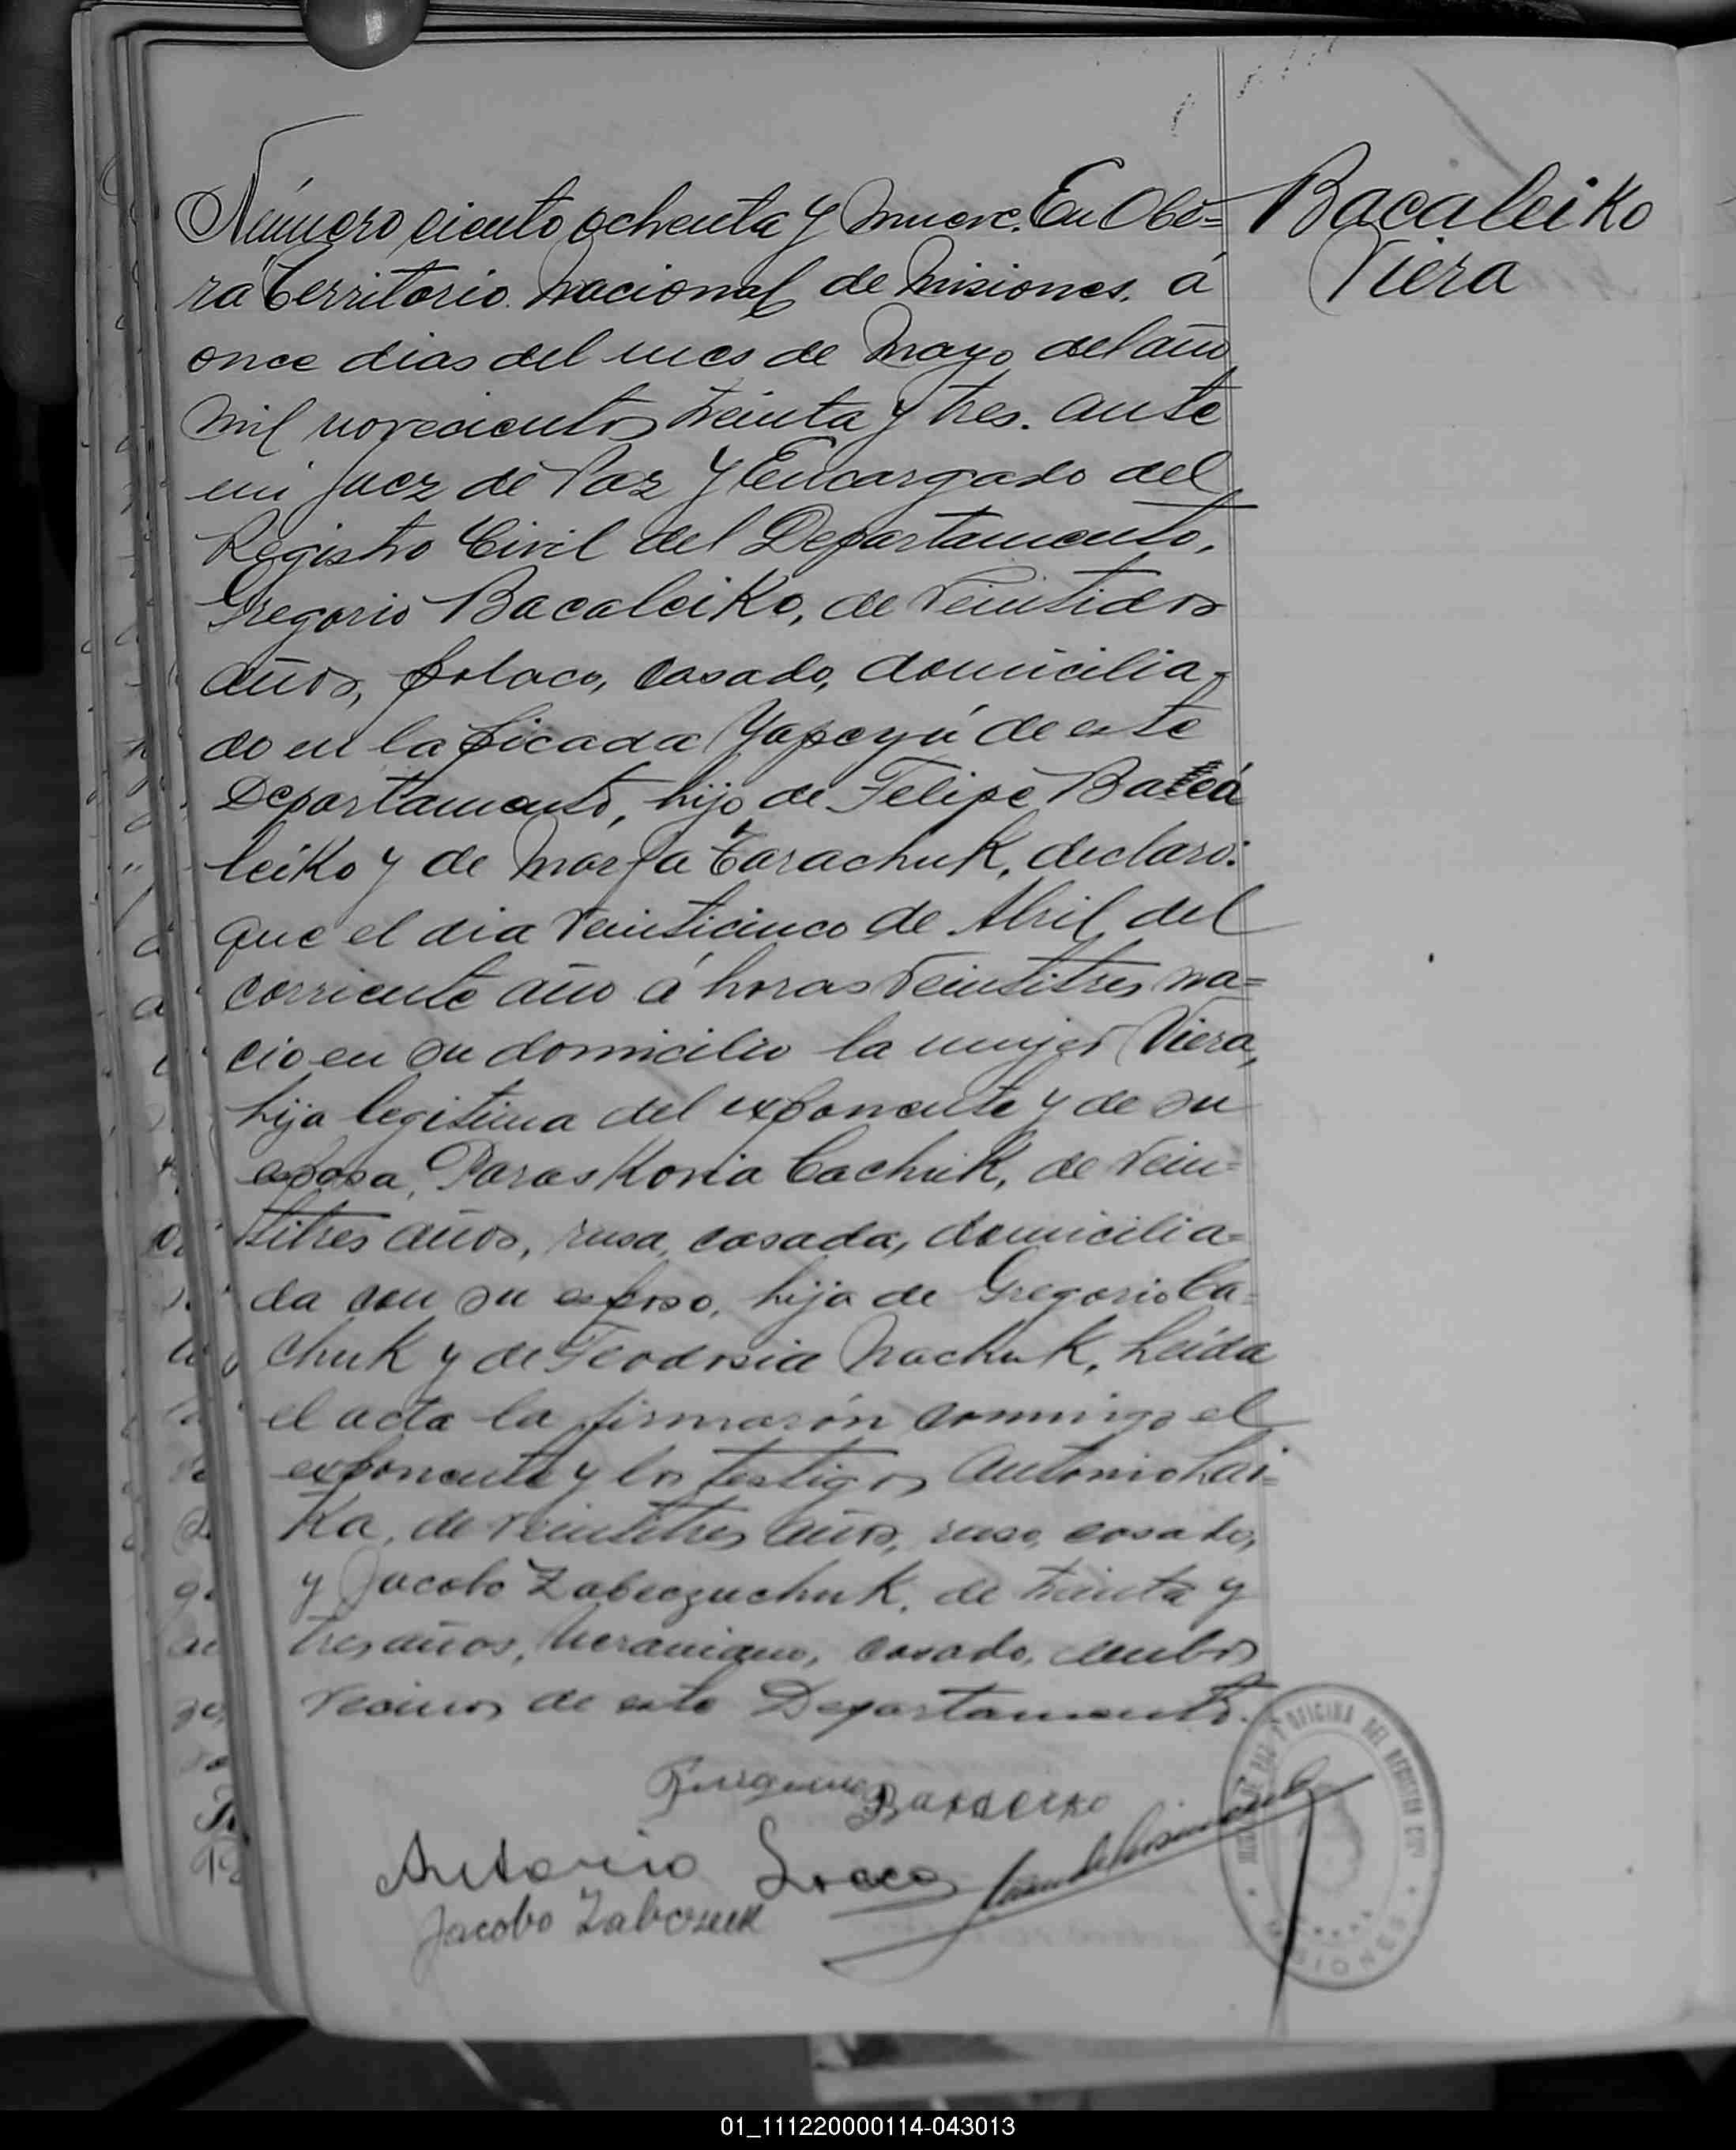 Número ciento ochenta y nueve. En Obe=
rá Territorio Nacional de Misiones, á
once dias del mes de Mayo del año
mil novecientos treinta y tres. ante
mi Juez de Paz y Encargado del
Registro Civil del Departamento,
Gregorio Bacaleiko, de veintidos
años, polaco, casado, domicilia-
do en la picada Yapeyú de este
Departamento, hijo de Felipe Baca
leiko y de Marfa Tarachuk, declaró:
que el dia veinticinco de Abril del
corriente año á horas veintitres na=
cio en su domicilio la mujer Viera,
hija legitima del exponente y de su
esposa, Paraskovia Cachuk, de vein=
titres años, rusa, casada, domicilia=
da con su esposo, hija de Gregorio Ca=
chuk y de Teodosia Nachuk, Leída
el acta la firmarón conmigo el
exponente y los testigos Antonio Lai=
ka, de veintitres años, ruso, casado,
y Jacobo Zabeczuchuk, de treinta y
tres años, Ucraniano, casado, ambos
vecinos de este Departamento.
Bacaleiko
Viera
Antonio
Jacobo Zabczuk
OFICINA DEL REGISTRO CIVIL
MISIONES
01_111220000114-043013